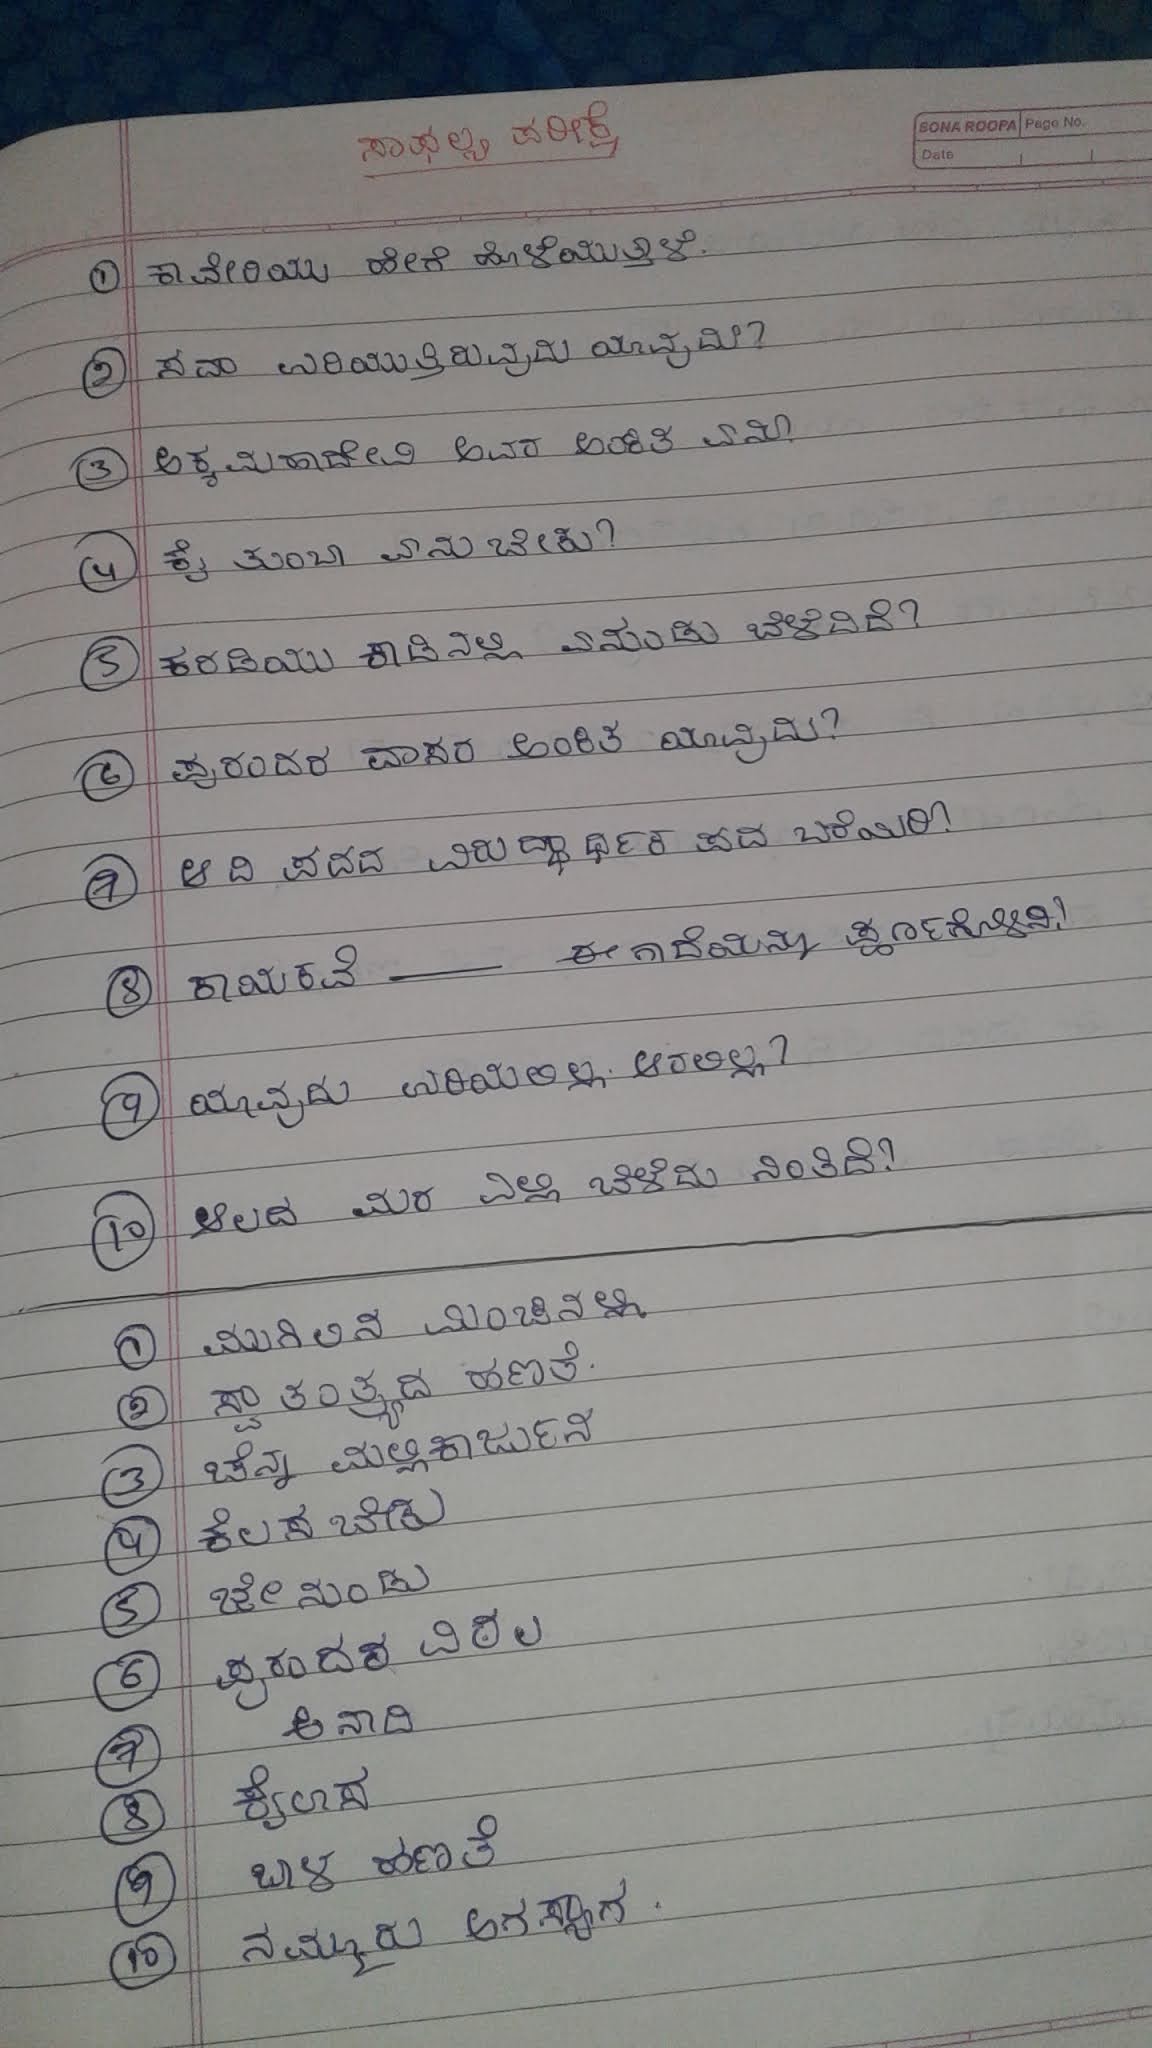 ಸಾಫಲ್ಯ ಪರೀಕ್ಷೆ
SONA ROOPA Page No.
Date
① ಕಾವೇರಿಯು ಹೇಗೆ ಹೊಳೆಯುತ್ತಾಳೆ.
② ಸದಾ ಉರಿಯುತ್ತಿರುವುದು ಯಾವುದು?
③ ಅಕ್ಕಮಹಾದೇವಿ ಅವರ ಅಂಕಿತ ಏನು?
④ ಕೈ ತುಂಬಾ ಏನು ಬೇಕು?
⑤ ಕರಡಿಯು ಕಾಡಿನಲ್ಲಿ ಏನುಂಡು ಬೆಳೆದಿದೆ?
⑥ ಪುರಂದರ ದಾಸರ ಅಂಕಿತ ಯಾವುದು?
⑦ ಆದಿ ಪದದ ವಿರುದ್ಧಾರ್ಥಕ ಪದ ಬರೆಯಿರಿ?
⑧ ಕಾಯಕವೆ ____ ಈ ಗಾದೆಯನ್ನು ಪೂರ್ಣಗೊಳಿಸಿ?
⑨ ಯಾವುದು ಉರಿಯಲಿಲ್ಲ. ಆರಲಿಲ್ಲ?
⑩ ಆಲದ ಮರ ಎಲ್ಲಿ ಬೆಳೆದು ನಿಂತಿದೆ?
① ಮುಗಿಲಿನ ಮಿಂಚಿನಲ್ಲಿ
② ಸ್ವಾತಂತ್ರ್ಯದ ಹಣತೆ.
③ ಚೆನ್ನ ಮಲ್ಲಿಕಾರ್ಜುನ
④ ಕೆಲಸ ಬೇಕು
⑤ ಜೇನುಂಡು
⑥ ಪುರಂದರ ವಿಠಲ
⑦ ಅನಾದಿ
⑧ ಕೈಲಾಸ
⑨ ಬಾಳ ಹಣತೆ
⑩ ನಮ್ಮೂರು